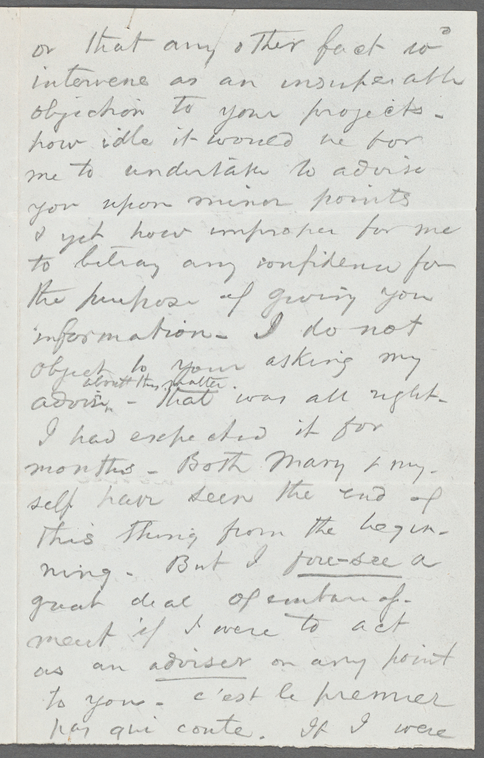 or that any other fact wd
intervene as an insuperable
objection to your projects -
how idle it would be for
me to undertake to advise
you upon minor points
& yet how improper for me
to betray any confidence for
the purpose of giving you
information - I do not
object to your asking my
about this matter.
advice - that was all right -
I had expected it for
months - Both Mary & my-
self have seen the end of
this thing from the begin-
ning - But I fore-see a
great deal of embarass-
ment if I were to act
as an adviser on any point
to you - c'est le premier
pas qui coute. If I were